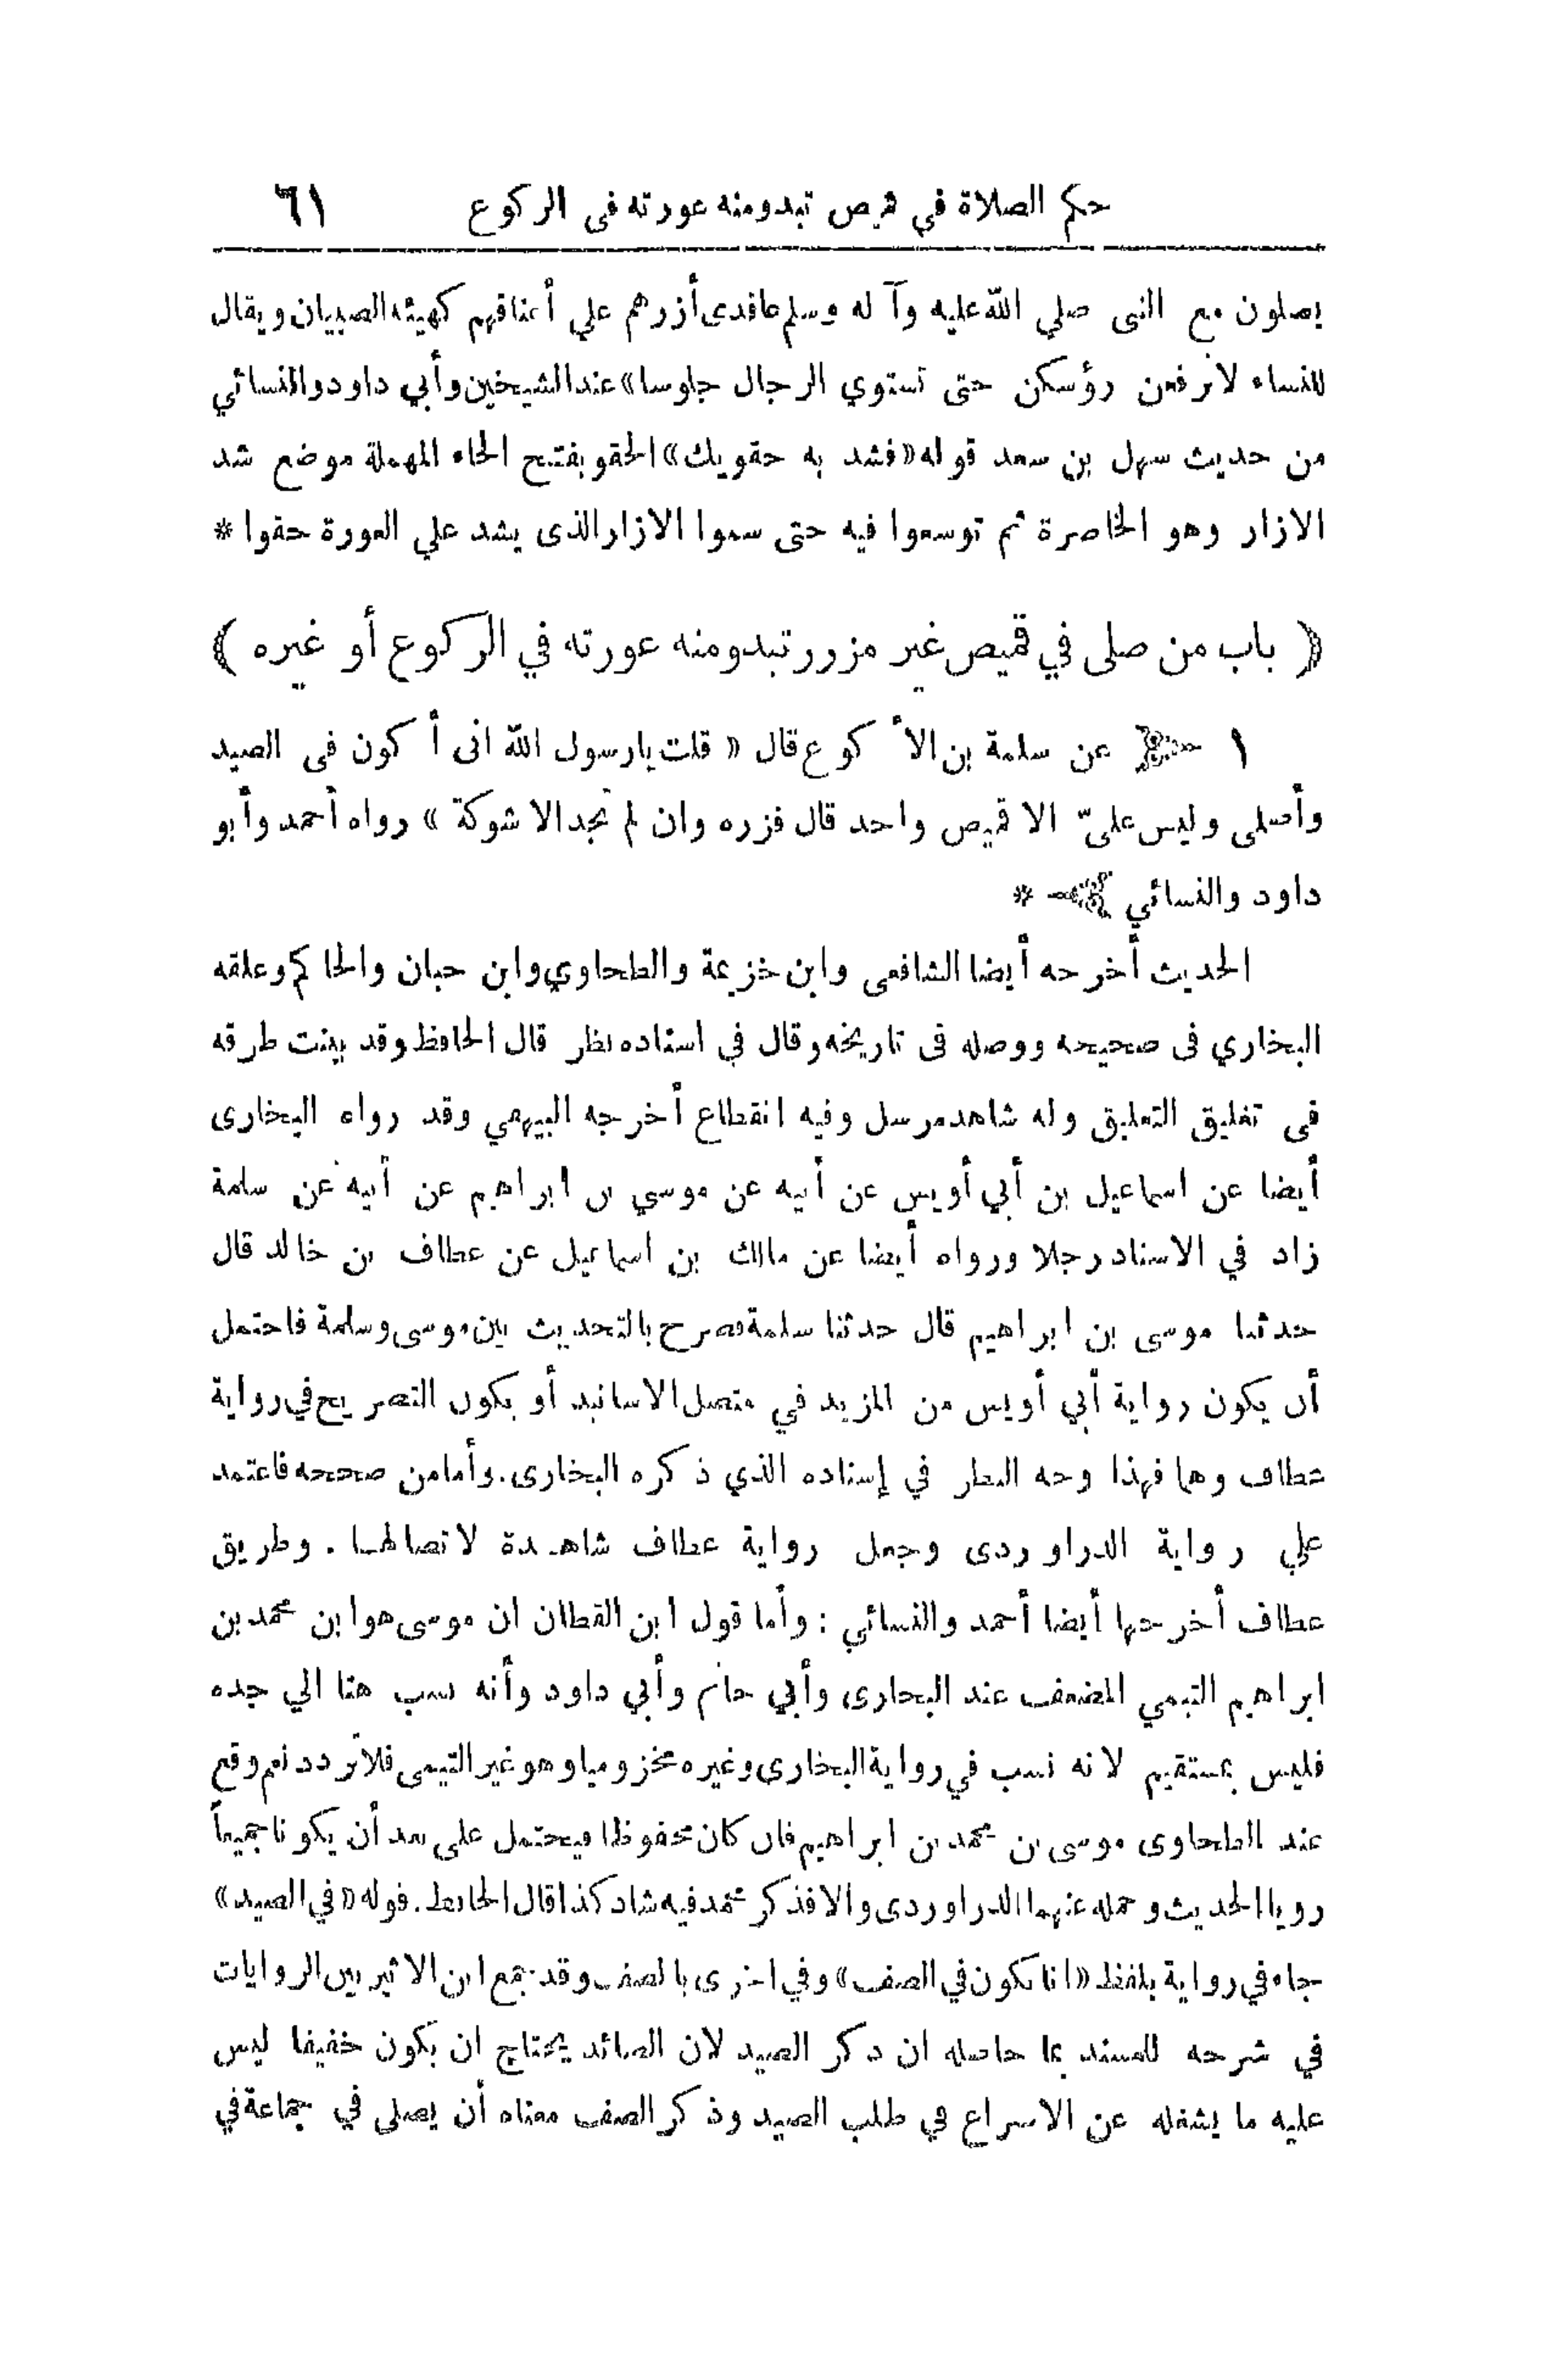 حكم الصلاة في قميص تبدو منه عورته فى الركوع ٦١
يصلون مع النبى صلي الله عليه وآله وسلم عاقدى أزرهم علي أعناقهم كهيئة الصبيان ويقال
للنساء لا ترفعن رؤسكن حتى تستوي الرجال جلوسا» عند الشيخين وأبي داود والنسائي
من حديث سهل بن سعد قوله «فشد به حقويك» الحقو بفتح الحاء المهملة موضع شد
الازار وهو الخاصرة ثم توسعوا فيه حتى سموا الازار الذى يشد علي العورة حقوا *
﴿ باب من صلى في قميص غير مزرر تبدو منه عورته في الركوع أو غيره ﴾
١ عن سلمة بن الأكوع قال « قلت يا رسول الله انى أكون فى الصيد
وأصلى وليس علىّ الا قميص واحد قال فزره وان لم تجد الا شوكة » رواه أحمد وأبو
داود والنسائي *
الحديث أخرجه أيضا الشافعى وابن خزيمة والطحاوي وابن حبان والحاكم وعلقه
البخاري فى صحيحه ووصله فى تاريخه وقال في اسناده نظر قال الحافظ وقد بينت طرقه
فى تغليق التعليق وله شاهد مرسل وفيه انقطاع أخرجه البيهقي وقد رواه البخارى
أيضا عن اسماعيل بن أبي أويس عن أبيه عن موسي بن ابراهيم عن أبيه عن سلمة
زاد في الاسناد رجلا ورواه أيضا عن مالك بن اسماعيل عن عطاف بن خالد قال
حدثنا موسى بن ابراهيم قال حدثنا سلمة فصرح بالتحديث بين موسى وسلمة فاحتمل
أن يكون رواية أبي أويس من المزيد في متصل الاسانيد أو يكون التصريح في رواية
عطاف وهما فهذا وجه النظر في إسناده الذي ذكره البخارى. وأما من صححه فاعتمد
علي رواية الدراوردى وجعل رواية عطاف شاهدة لاتصالها . وطريق
عطاف أخرجها أيضا أحمد والنسائي : وأما قول ابن القطان ان موسى هو ابن محمد بن
ابراهيم التيمي المضعف عند البخارى وأبي حاتم وأبي داود وأنه نسب هنا الي جده
فليس بمستقيم لانه نسب في رواية البخارى وغيره مخزوميا وهو غير التيمى فلا تردد نعم وقع
عند الطحاوى موسى بن محمد بن ابراهيم فان كان محفوظا فيحتمل على بعد أن يكونا جميعاً
رويا الحديث وحمله عنهما الدراوردى والا فذكر محمد فيه شاذ كذا قال الحافظ. قوله «في الصيد»
جاء في رواية بلفظ «انا نكون في الصف» وفي اخرى بالصف وقد جمع ابن الاثير بين الروايات
في شرحه للمسند بما حاصله ان ذكر الصيد لان الصائد يحتاج ان يكون خفيفا ليس
عليه ما يشغله عن الاسراع في طلب الصيد وذكر الصف معناه أن يصلى في جماعة في